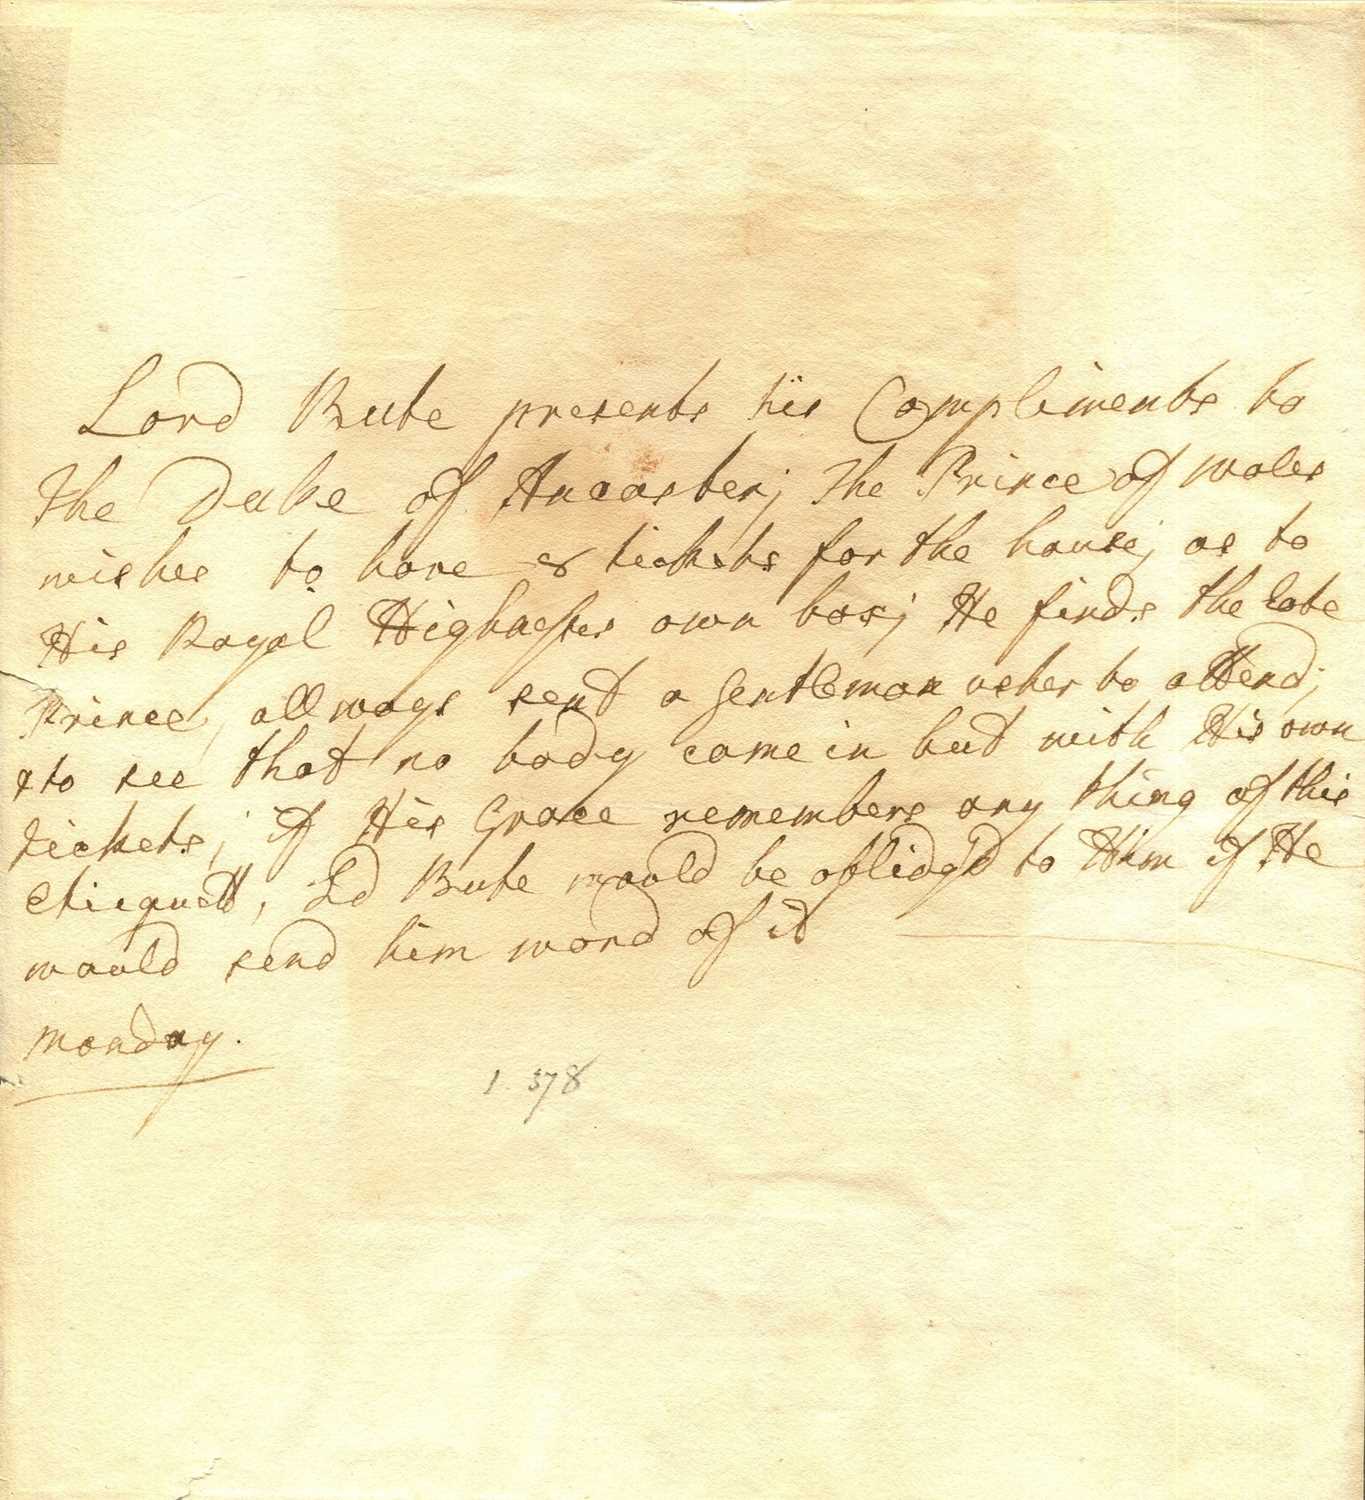 Lord Bute presents his Compliments to
the Duke of Ancaster; The Prince of wales
wishes to have 8 tickets for the house; as to
His Royal Highnesses own box; He finds the late
Prince, allways sent a Gentleman usher to attend;
& to see that no body came in but with His own
tickets; if His Grace remembers any thing of this
Etiquett, Ld Bute would be oblidg'd to Him if He
would send him word of it
monday.
1 378